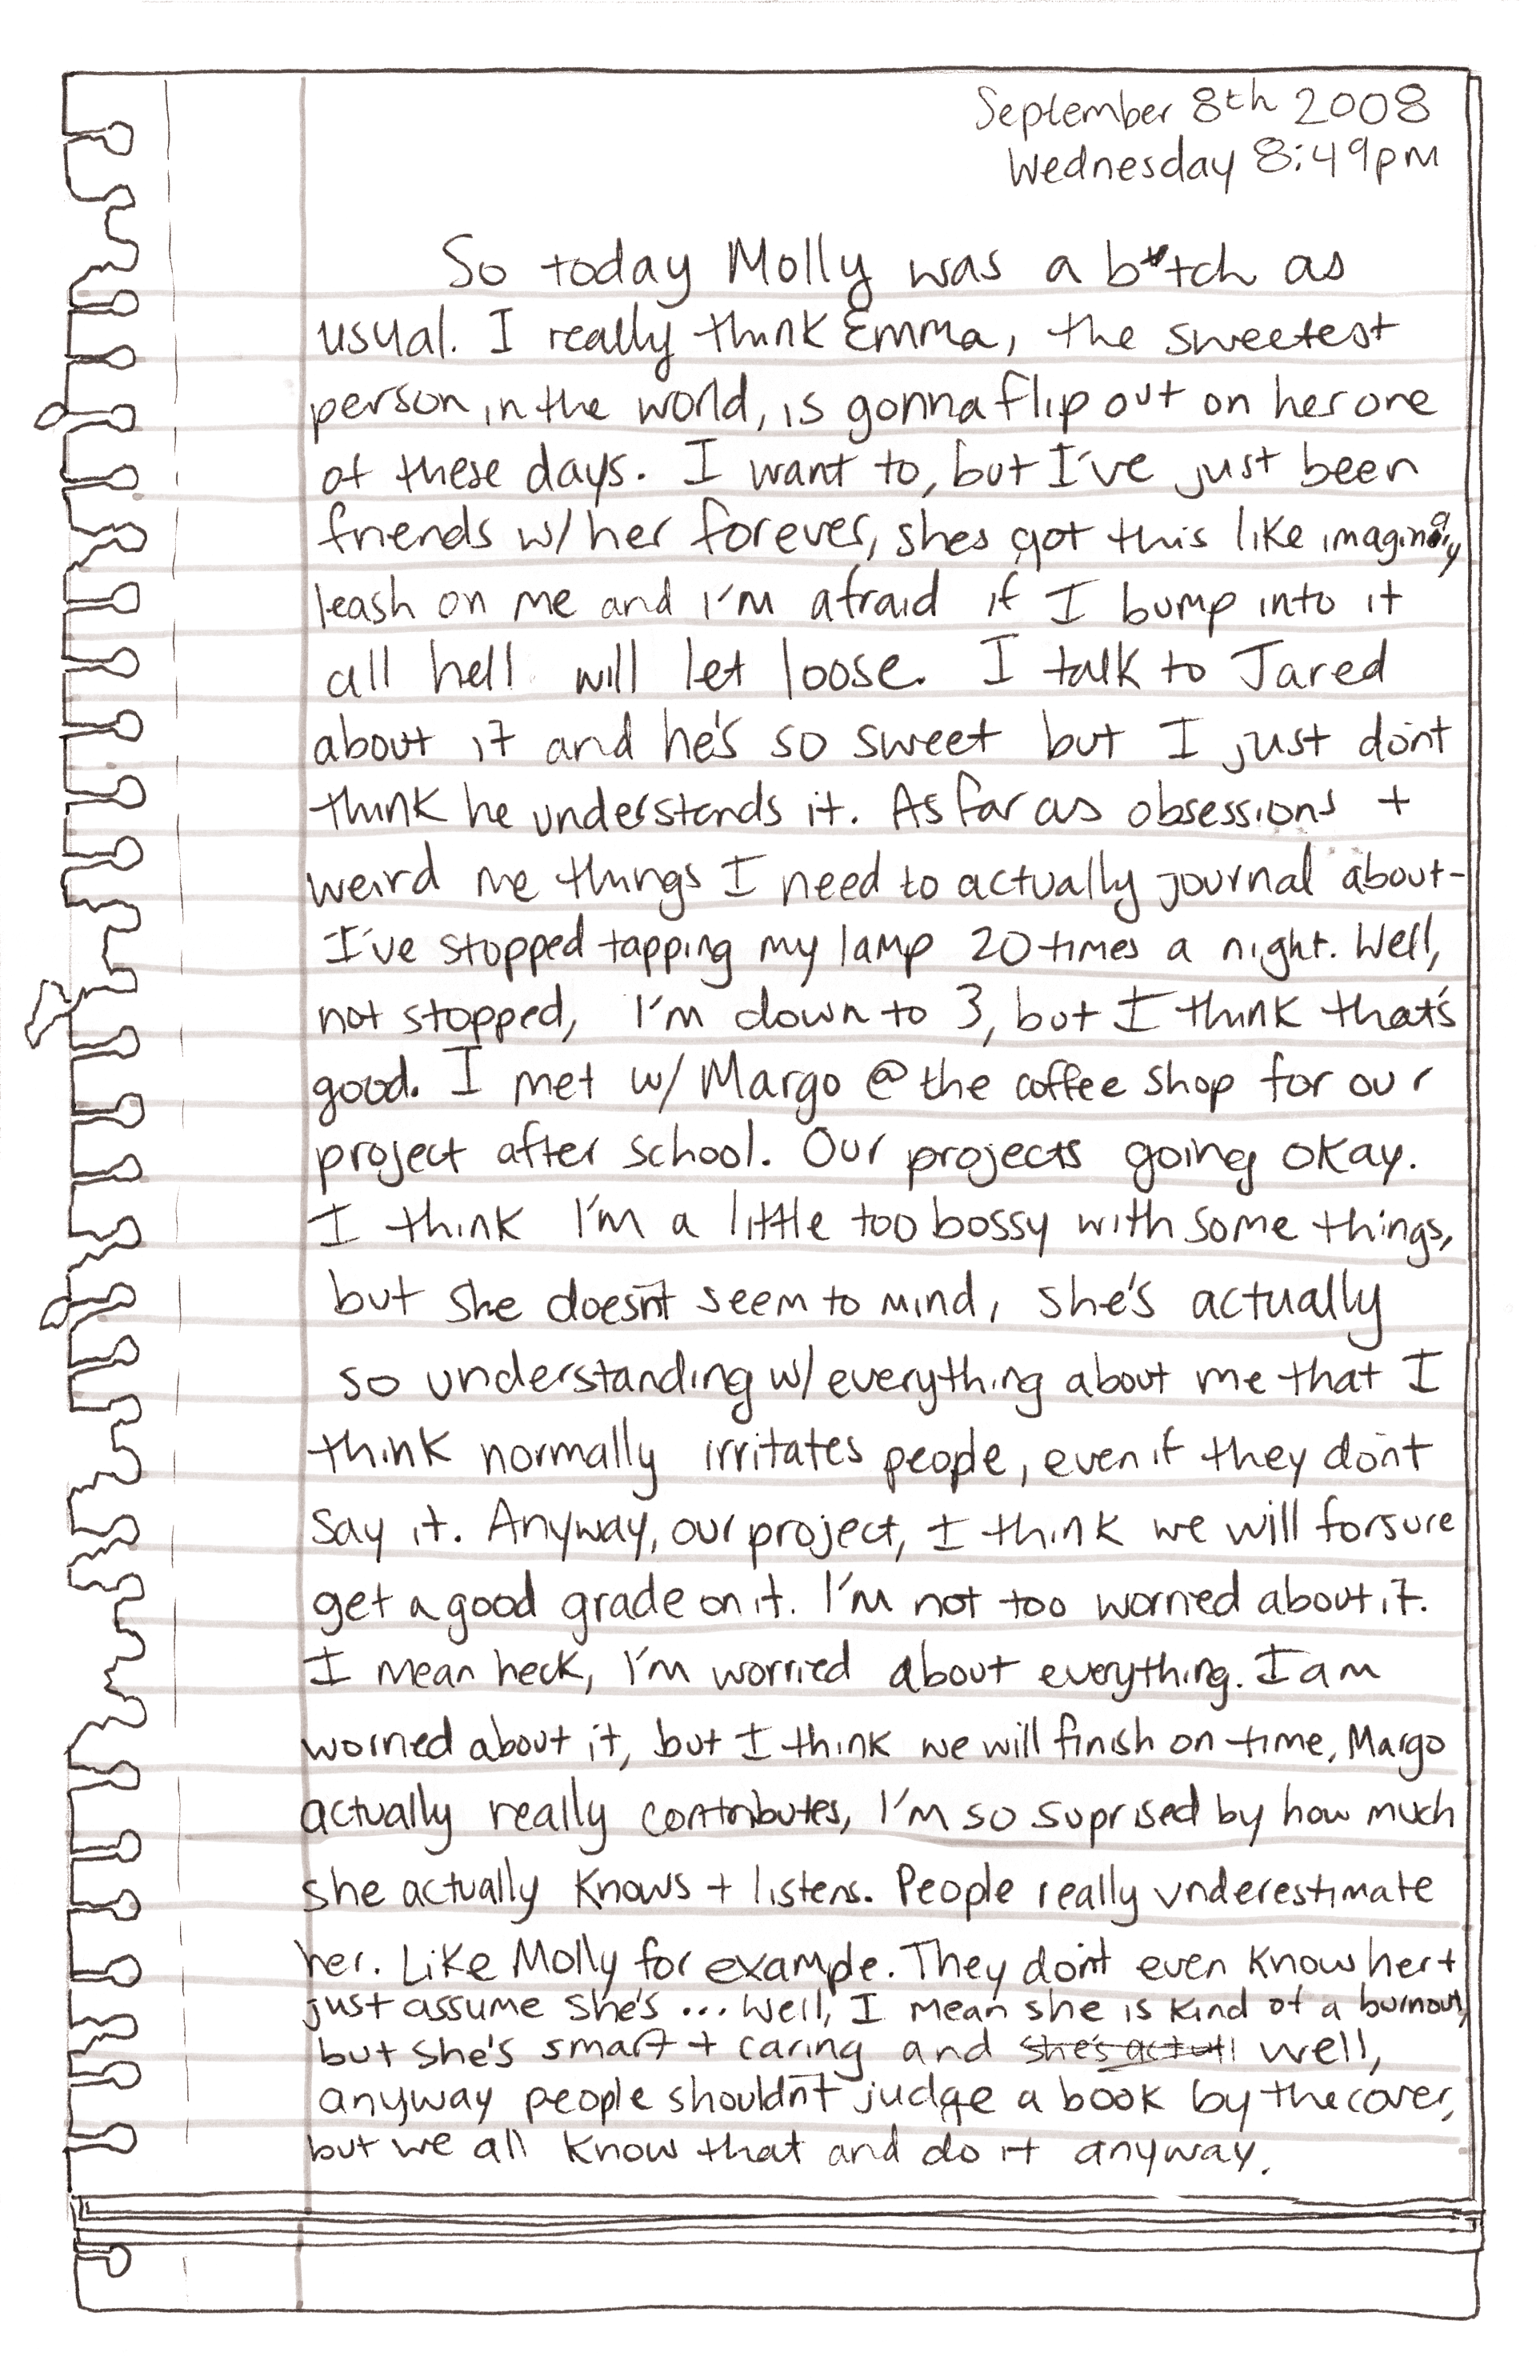 September 8th 2008
Wednesday 8:49pm
So today Molly was a b*tch as
usual. I really think Emma, the sweetest
person in the world, is gonna flip out on her one
of these days. I want to, but I've just been
friends w/ her forever, shes got this like imaginary
leash on me and I'm afraid if I bump into it
all hell will let loose. I talk to Jared
about it and he's so sweet but I just don't
think he understands it. As far as obsessions +
weird me things I need to actually journal about-
I've stopped tapping my lamp 20 times a night. Well,
not stopped, I'm down to 3, but I think that's
good. I met w/ Margo @ the coffee shop for our
project after school. Our projects going okay.
I think I'm a little too bossy with some things,
but she doesn't seem to mind, she's actually
so understanding w/ everything about me that I
think normally irritates people, even if they don't
say it. Anyway, our project, I think we will forsure
get a good grade on it. I'm not too worried about it.
I mean heck, I'm worried about everything. I am
worried about it, but I think we will finish on time, Margo
actually really contributes, I'm so suprised by how much
she actually knows + listens. People really underestimate
her. Like Molly for example. They don't even know her +
just assume she's ... Well, I mean she is kind of a burnout,
but she's smart + caring and she's actull well,
anyway people shouldn't judge a book by the cover,
but we all know that and do it anyway.